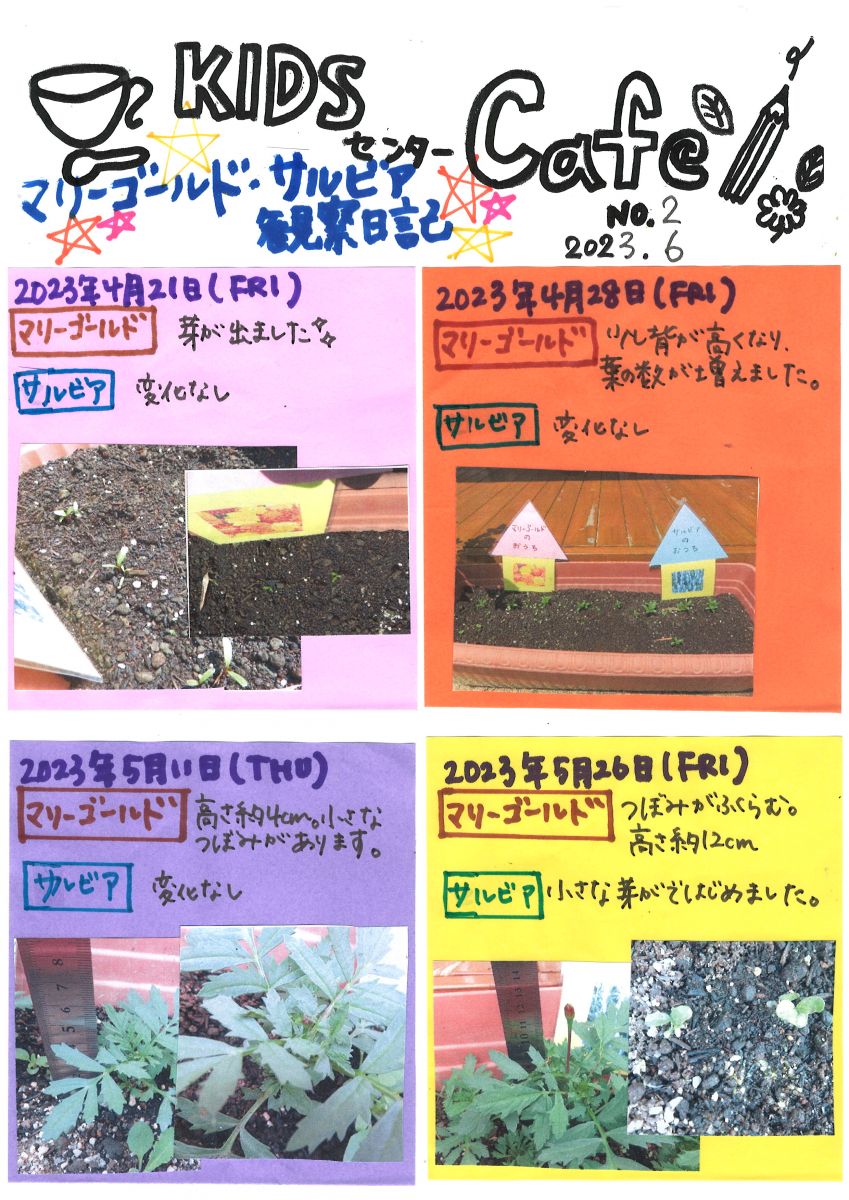 KIDS
センター Cafe
マリーゴールド・サルビア
観察日記
No.2
2023.6
2023年4月21日(FRI)
マリーゴールド 芽が出ました
サルビア 変化なし
2023年4月28日(FRI)
マリーゴールド 少し背が高くなり、
葉の数が増えました。
サルビア 変化なし
マリーゴールド
の
おうち
サルビア
の
おうち
2023年5月11日(THU)
マリーゴールド 高さ約4cm。小さな
つぼみがあります。
サルビア 変化なし
8
7
6
5
2023年5月26日(FRI)
マリーゴールド つぼみがふくらむ。
高さ約12cm
サルビア 小さな芽がではじめました。
14
13
12
11
10